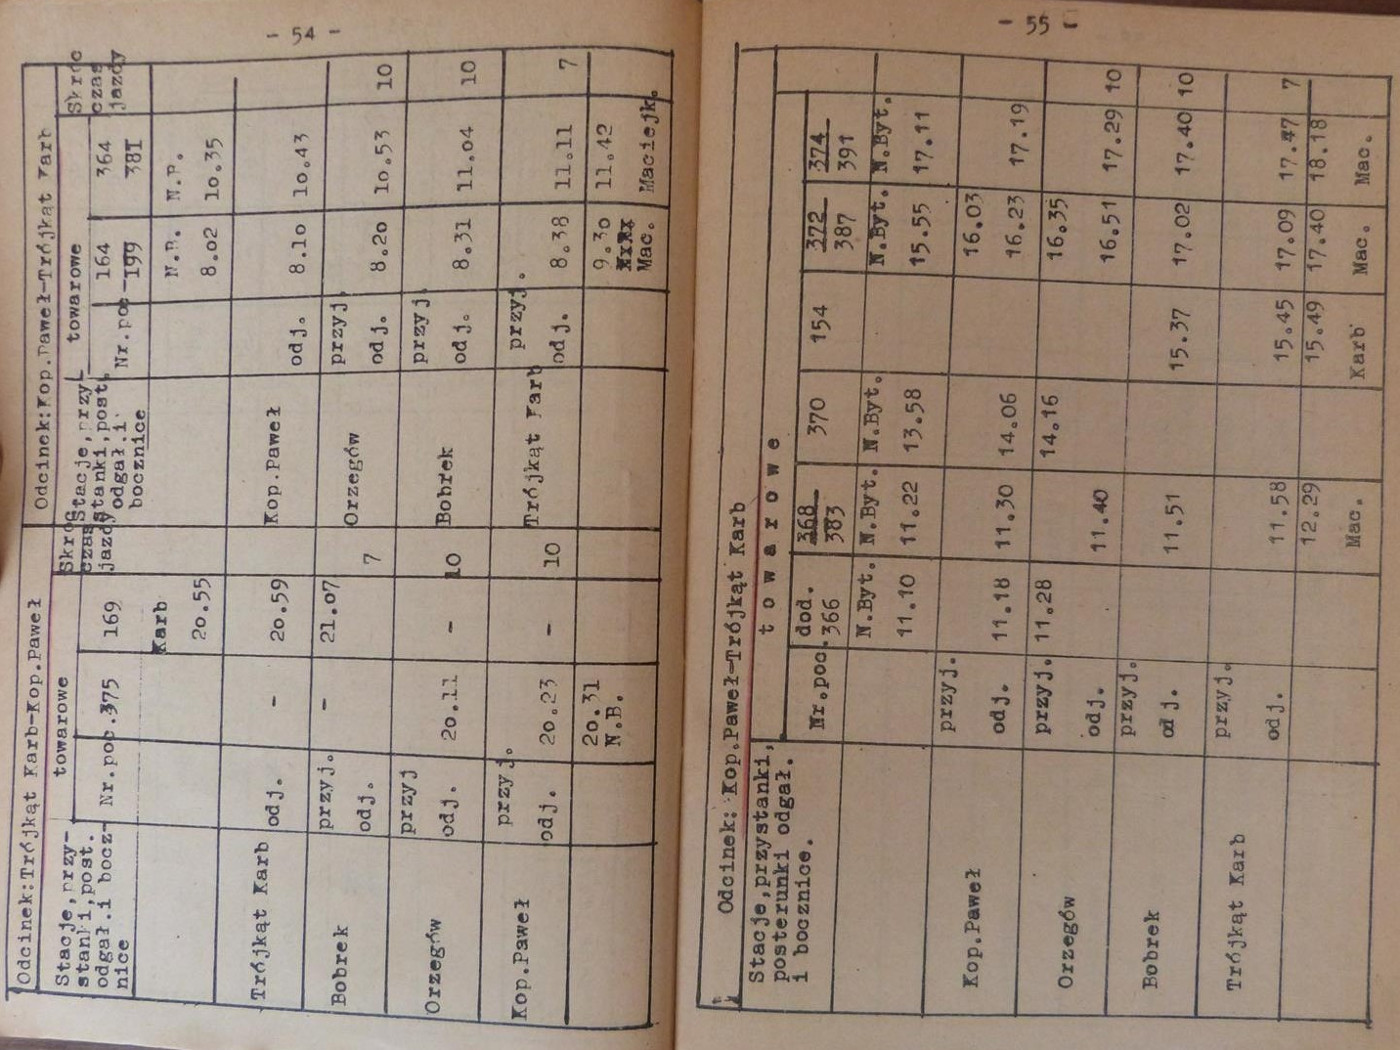 - 54 -
Odcinek:Trójkąt Karb-Kop.Paweł
Stacje,przy-
stanki,post.
odgał.i bocz-
nice
towarowe
Skróc
czas
jazdy
Nr.poc.375
169
Karb
20.55
Trójkąt Karb
odj.
-
20.59
Bobrek
przyj.
-
21.07
odj.
7
Orzegów
przyj
odj.
20.11
-
10
Kop.Paweł
przyj.
odj.
20.23
-
10
20.31
N.B.
Odcinek:Kop.Paweł-Trójkąt Karb
Stacje,przy-
stanki,post.
odgał.i
bocznice
towarowe
Skróc
czas
jazdy
Nr.poc
164
199
364
381
N.B.
8.02
N.P.
10.35
Kop.Paweł
odj.
8.10
10.43
Orzegów
przyj.
odj.
8.20
10.53
10
Bobrek
przyj.
odj.
8.31
11.04
10
Trójkąt Karb
przyj.
odj.
8.38
11.11
7
9.30
11.42
Mac.
Maciejk.
- 55 -
Odcinek: Kop.Paweł-Trójkąt Karb
Stacje,przystanki,
posterunki odgał.
i bocznice.
t o w a r o w e
Nr.poc.
dod.
366
368
383
370
154
372
387
374
391
N.Byt.
N.Byt.
N.Byt.
N.Byt.
N.Byt.
11.10
11.22
13.58
15.55
17.11
Kop.Paweł
przyj.
16.03
odj.
11.18
11.30
14.06
16.23
17.19
Orzegów
przyj.
11.28
14.16
16.35
odj.
11.40
16.51
17.29
10
Bobrek
przyj.
odj.
11.51
15.37
17.02
17.40
10
Trójkąt Karb
przyj.
odj.
11.58
15.45
17.09
17.47
7
12.29
15.49
17.40
18.18
Mac.
Karb
Mac.
Mac.